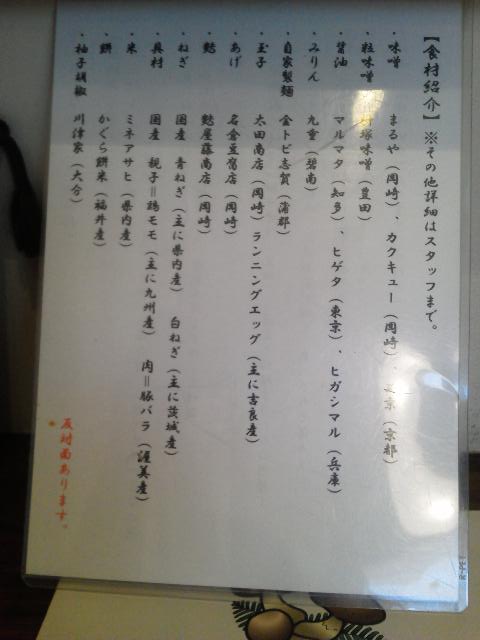 【食材紹介】 ※その他詳細はスタッフまで。
・味噌 まるや（岡崎）、カクキュー（岡崎）、 京（京都）
・粒味噌 塚味噌（豊田）
・醤油 マルマタ（知多）、ヒゲタ（東京）、ヒガシマル（兵庫）
・みりん 九重（碧南）
・自家製麺 金トビ志賀（蒲郡）
・玉子 太田商店（岡崎）ランニングエッグ（主に吉良産）
・あげ 名倉豆富店（岡崎）
・麩 麩屋藤商店（岡崎）
・ねぎ 国産 青ねぎ（主に県内産） 白ねぎ（主に茨城産）
・具材 国産 親子＝鶏モモ（主に九州産） 肉＝豚バラ（渥美産）
・米 ミネアサヒ（県内産）
・餅 かぐら餅米（福井産）
・柚子胡椒 川津家（大分）
反対面あります。
R-PET